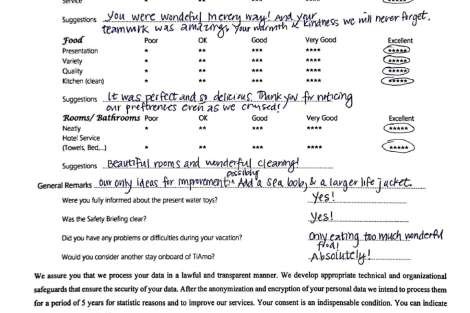 Service
Suggestions You were wondeful mereny way! And your
teamwork was amazing. Your warmth & kindness we will never forget.
Food Poor OK Good Very Good Excellent
Presentation * ** *** **** *****
Variety * ** *** **** *****
Quality * ** *** **** *****
Kitchen (clean) * ** *** **** *****
Suggestions It was perfect and so delicious. Thank you for noticing
our preferences even as we cruised!
Rooms/ Bathrooms Poor OK Good Very Good Excellent
Neatly * ** *** **** *****
Hotel Service
(Towels, Bed,...) * ** *** *****
Suggestions Beautiful rooms and wonderful cleaning!
possibly
General Remarks Our only ideas for improvement: Add a sea bob, & a larger life jacket.
Were you fully informed about the present water toys? Yes!
Was the Safety Briefing clear? Yes!
Did you have any problems or difficulties during your vacation? Only eating too much wonderful
food!
Would you consider another stay onboard of TiAmo? Absolutely!
We assure you that we process your data in a lawful and transparent manner. We develop appropriate technical and organizational
safeguards that ensure the security of your data. After the anonymization and encryption of your personal data we intend to process them
for a period of 5 years for statistic reasons and to improve our services. Your consent is an indispensable condition. You can indicate